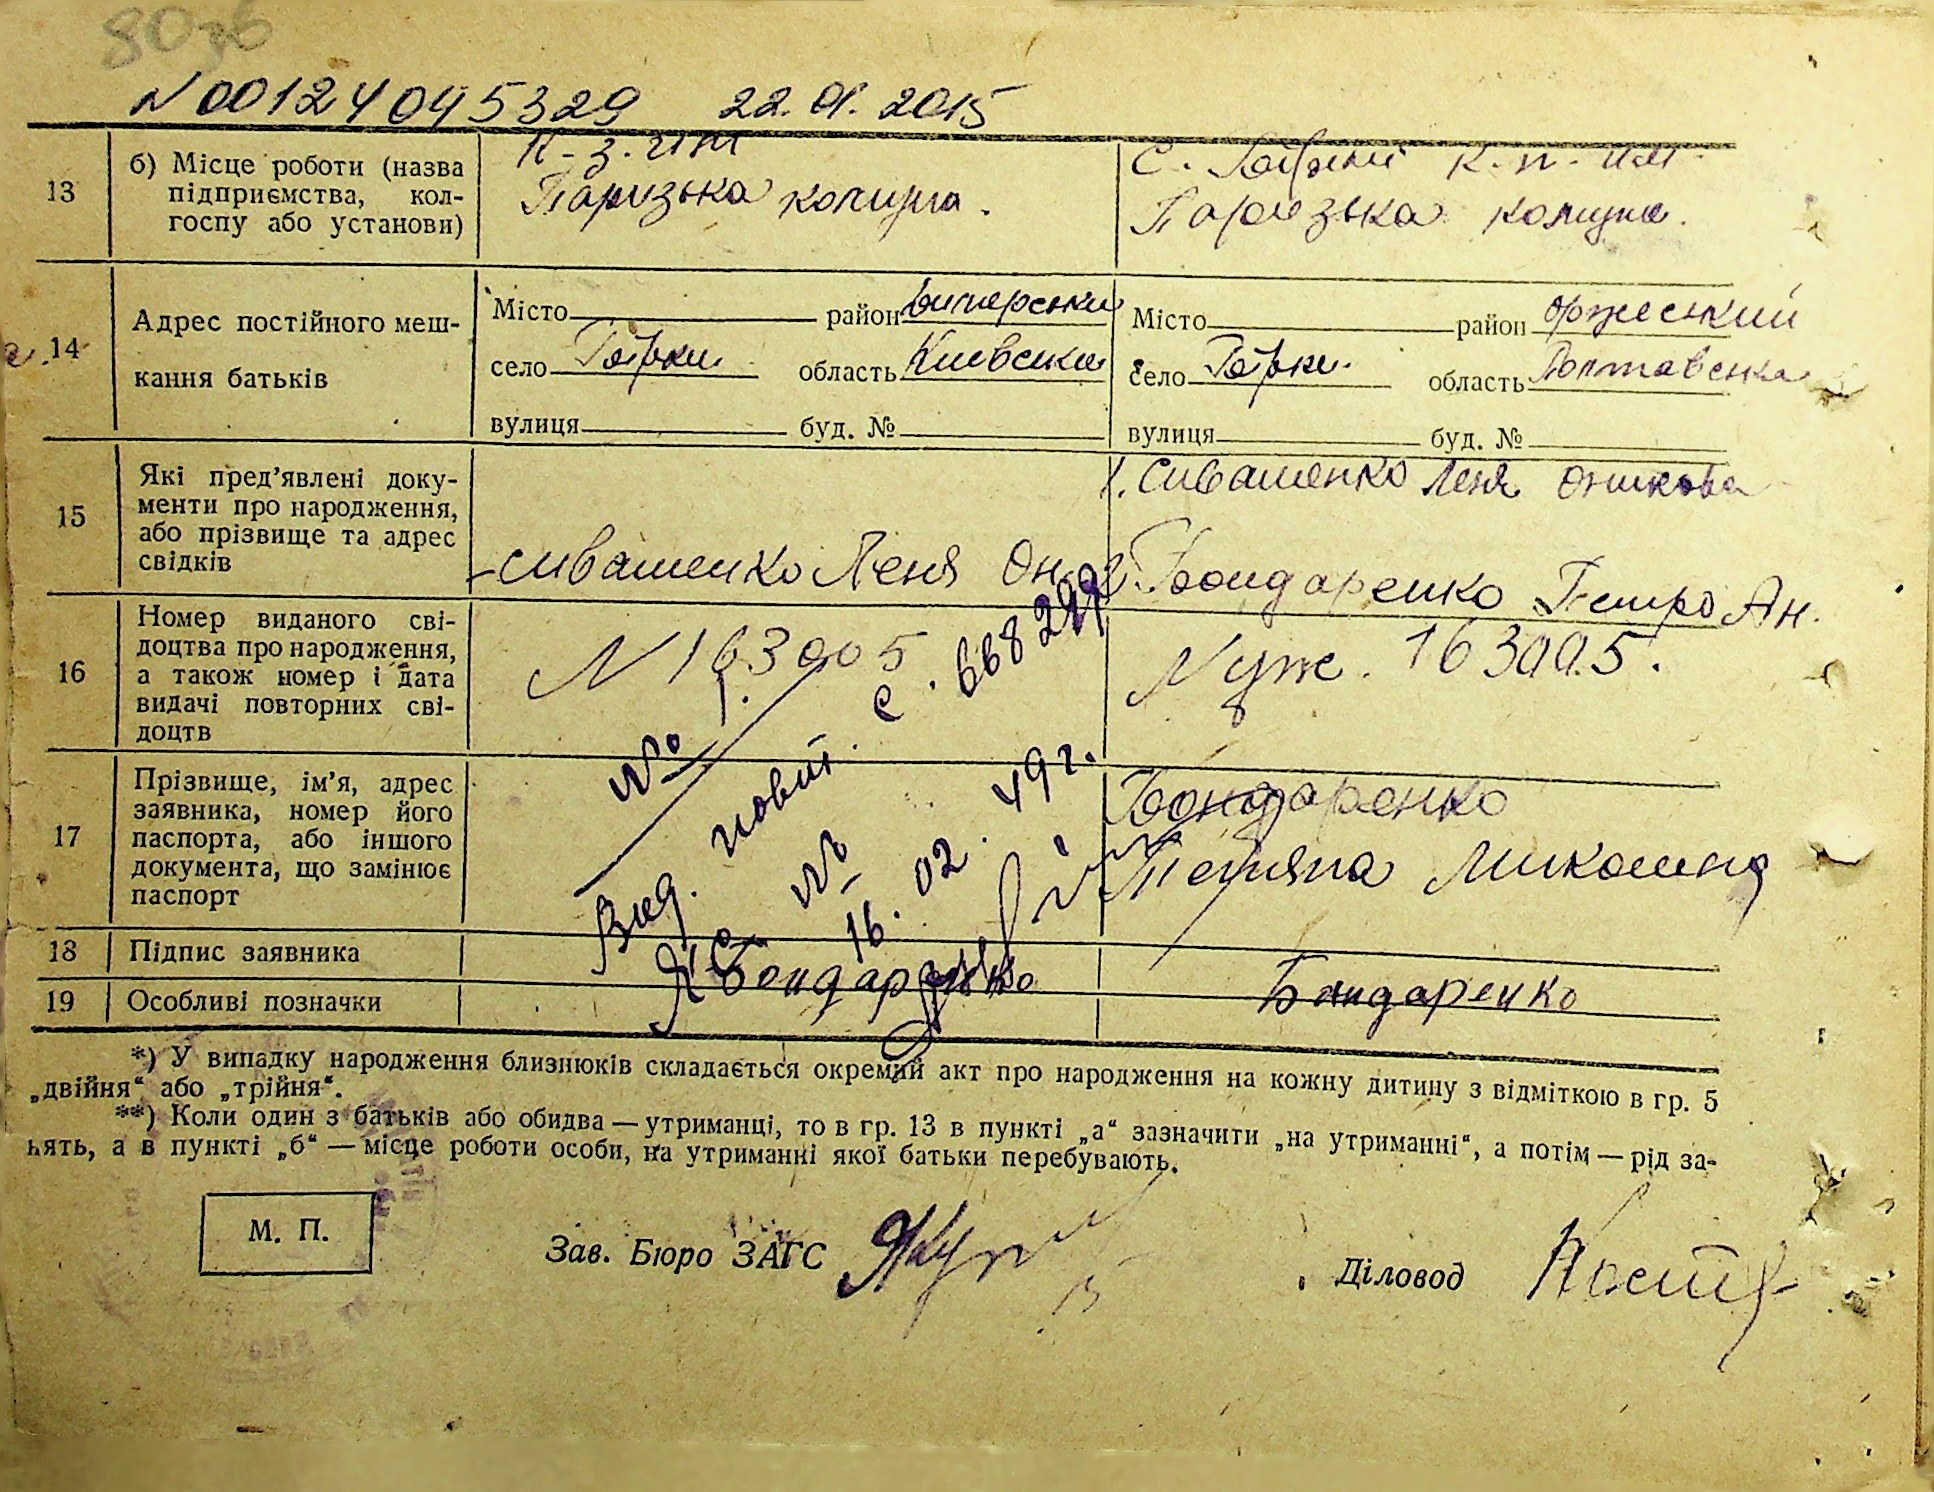 8036
N00124045329 22.01.2015
13
б) Місце роботи (назва
підприємства, кол-
госпу або установи)
К-з. ім
Паризька комуна.
С. К. п. им.
Паризька комуна.
14
Адрес постійного меш-
кання батьків
Місто район
село область Киевська
вулиця буд. №
Місто район Оржеський
село область Полтавська
вулиця буд. №
15
Які пред’явлені доку-
менти про народження,
або прізвище та адрес
свідків
Сивашенко Леня Он.
1. Сивашенко Леня
2. Бондаренко Петро Ан.
16
Номер виданого сві-
доцтва про народження,
а також номер і дата
видачі повторних сві-
доцтв
N 163005
N уж. 163005.
№
Вид. новий. с. 668299
№
16. 02. 49 г.
17
Прізвище, ім’я, адрес
заявника, номер його
паспорта, або іншого
документа, що замінює
паспорт
Бондаренко
Тетяна
18
Підпис заявника
Бондаренко
Бондаренко
19
Особливі позначки
*) У випадку народження близнюків складається окремий акт про народження на кожну дитину з відміткою в гр. 5
„двійня“ або „трійня“.
**) Коли один з батьків або обидва — утриманці, то в гр. 13 в пункті „а“ зазначити „на утриманні“, а потім — рід за-
нять, а в пункті „б“ — місце роботи особи, на утриманні якої батьки перебувають.
М. П.
Зав. Бюро ЗАГС
Діловод